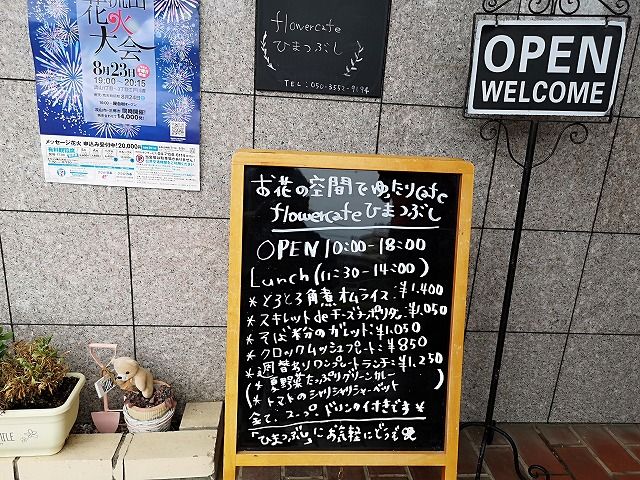 流山
花火
大会
8月23日
19:00~20:15
14,000発!
メッセージ花火 申込み受付中!20,000円
flowercafe
ひまつぶし
TEL:050-3552-9194
OPEN
WELCOME
お花の空間でゆったりcafe
flowercafeひまつぶし
OPEN 10:00-18:00
Lunch(11:30-14:00)
*とろとろ角煮オムライス:¥1,400
*スキレットdeチーズナポリタン:¥1,050
*そば粉のガレット:¥1,050
*クロックムッシュプレート:¥850
*週替わりワンプレートランチ:¥1,250
(*夏野菜たっぷりグリーンカレー
*トマトのシャリシャリシャーベット
全て、スープ、ドリンク付きです
「ひまつぶし」にお気軽にどうぞ